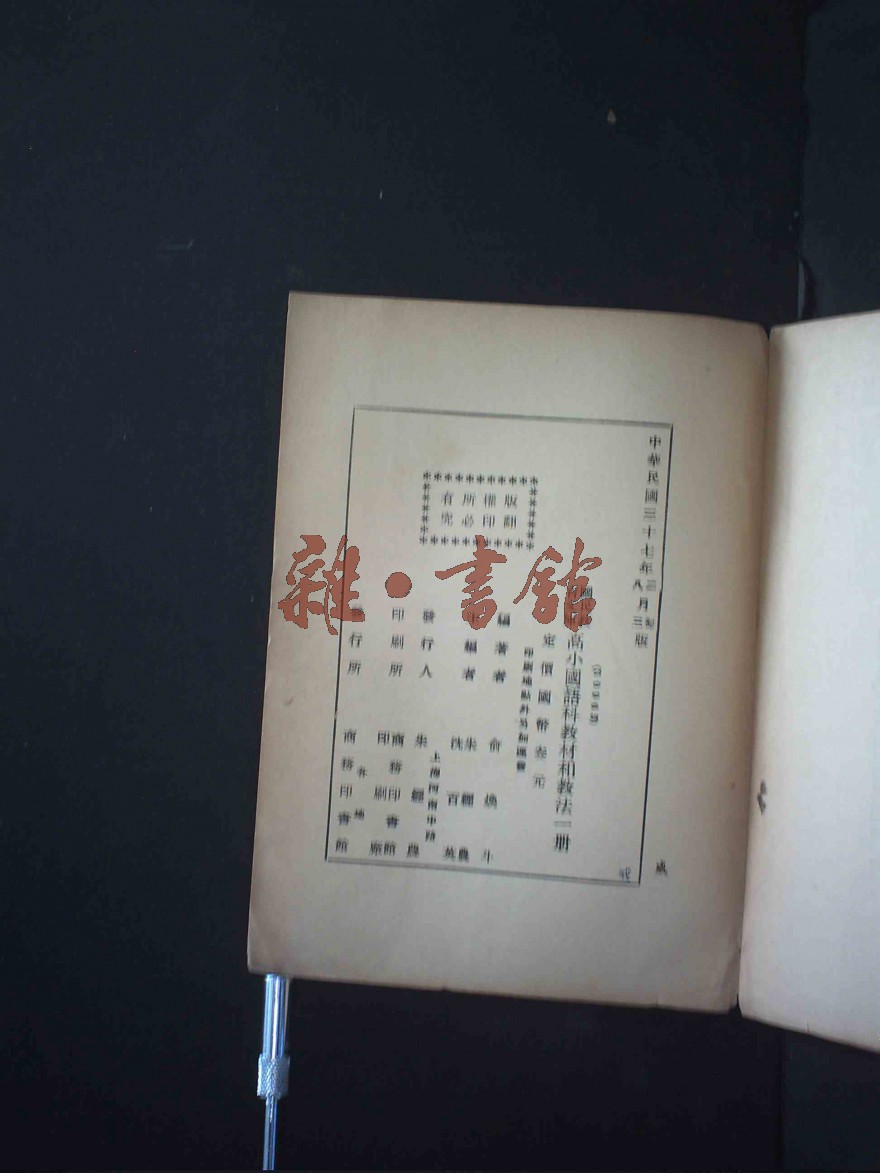 中華民國三十七年三月初版
八月三版
高小國語科教材和教法一册
定價國幣叁元
印刷地點外另加運費
編著者 俞煥斗
主編者 朱經農 沈百英
發行人 朱經農
上海河南中路
印刷所 商務印書館 印刷廠
發行所 各地 商務印書館
版權所有
翻印必究
成
雜·書館